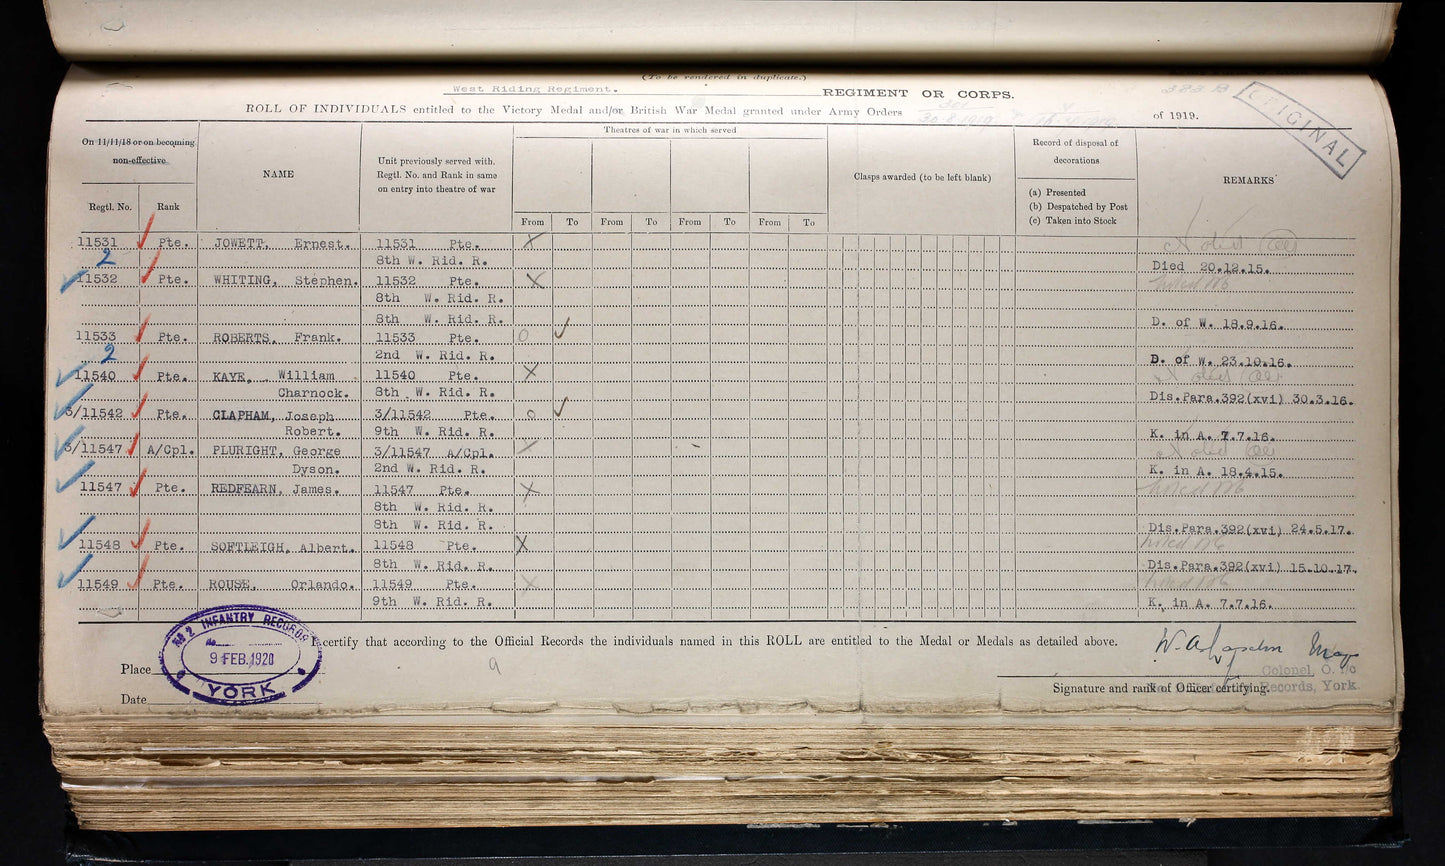 (To be rendered in duplicate.)
West Riding Regiment. REGIMENT OR CORPS.
383 B
ORIGINAL
ROLL OF INDIVIDUALS entitled to the Victory Medal and/or British War Medal granted under Army Orders 301 30.8.1919 of 1919.
On 11/11/18 or on becoming non-effective
Regtl. No.
Rank
NAME
Unit previously served with. Regtl. No. and Rank in same on entry into theatre of war
Theatres of war in which served
From To From To From To From To
Clasps awarded (to be left blank)
Record of disposal of decorations
(a) Presented
(b) Despatched by Post
(c) Taken into Stock
REMARKS
11531 Pte. JOWETT, Ernest. 11531 Pte. X
2 8th W. Rid. R. Died 20.12.15.
11532 Pte. WHITING, Stephen. 11532 Pte. X
8th W. Rid. R.
8th W. Rid. R. D. of W. 18.9.16.
11533 Pte. ROBERTS, Frank. 11533 Pte. O
2 2nd W. Rid. R. D. of W. 23.10.16.
11540 Pte. KAYE, William 11540 Pte. X
Charnock. 8th W. Rid. R. Dis.Para.392(xvi) 30.3.16.
3/11542 Pte. CLAPHAM, Joseph 3/11542 Pte. O
Robert. 9th W. Rid. R. K. in A. 7.7.16.
3/11547 A/Cpl. PLURIGHT, George 3/11547 A/Cpl. X
Dyson. 2nd W. Rid. R. K. in A. 18.4.15.
11547 Pte. REDFEARN, James. 11547 Pte. X
8th W. Rid. R.
8th W. Rid. R. Dis.Para.392(xvi) 24.5.17.
11548 Pte. SOFTLEIGH, Albert. 11548 Pte. X
8th W. Rid. R. Dis.Para.392(xvi) 15.10.17.
11549 Pte. ROUSE, Orlando. 11549 Pte. X
9th W. Rid. R. K. in A. 7.7.16.
certify that according to the Official Records the individuals named in this ROLL are entitled to the Medal or Medals as detailed above.
No 2 INFANTRY RECORDS
9 FEB. 1920
YORK
Place
Date
Colonel, O. i/c
Records, York
Signature and rank of Officer certifying.